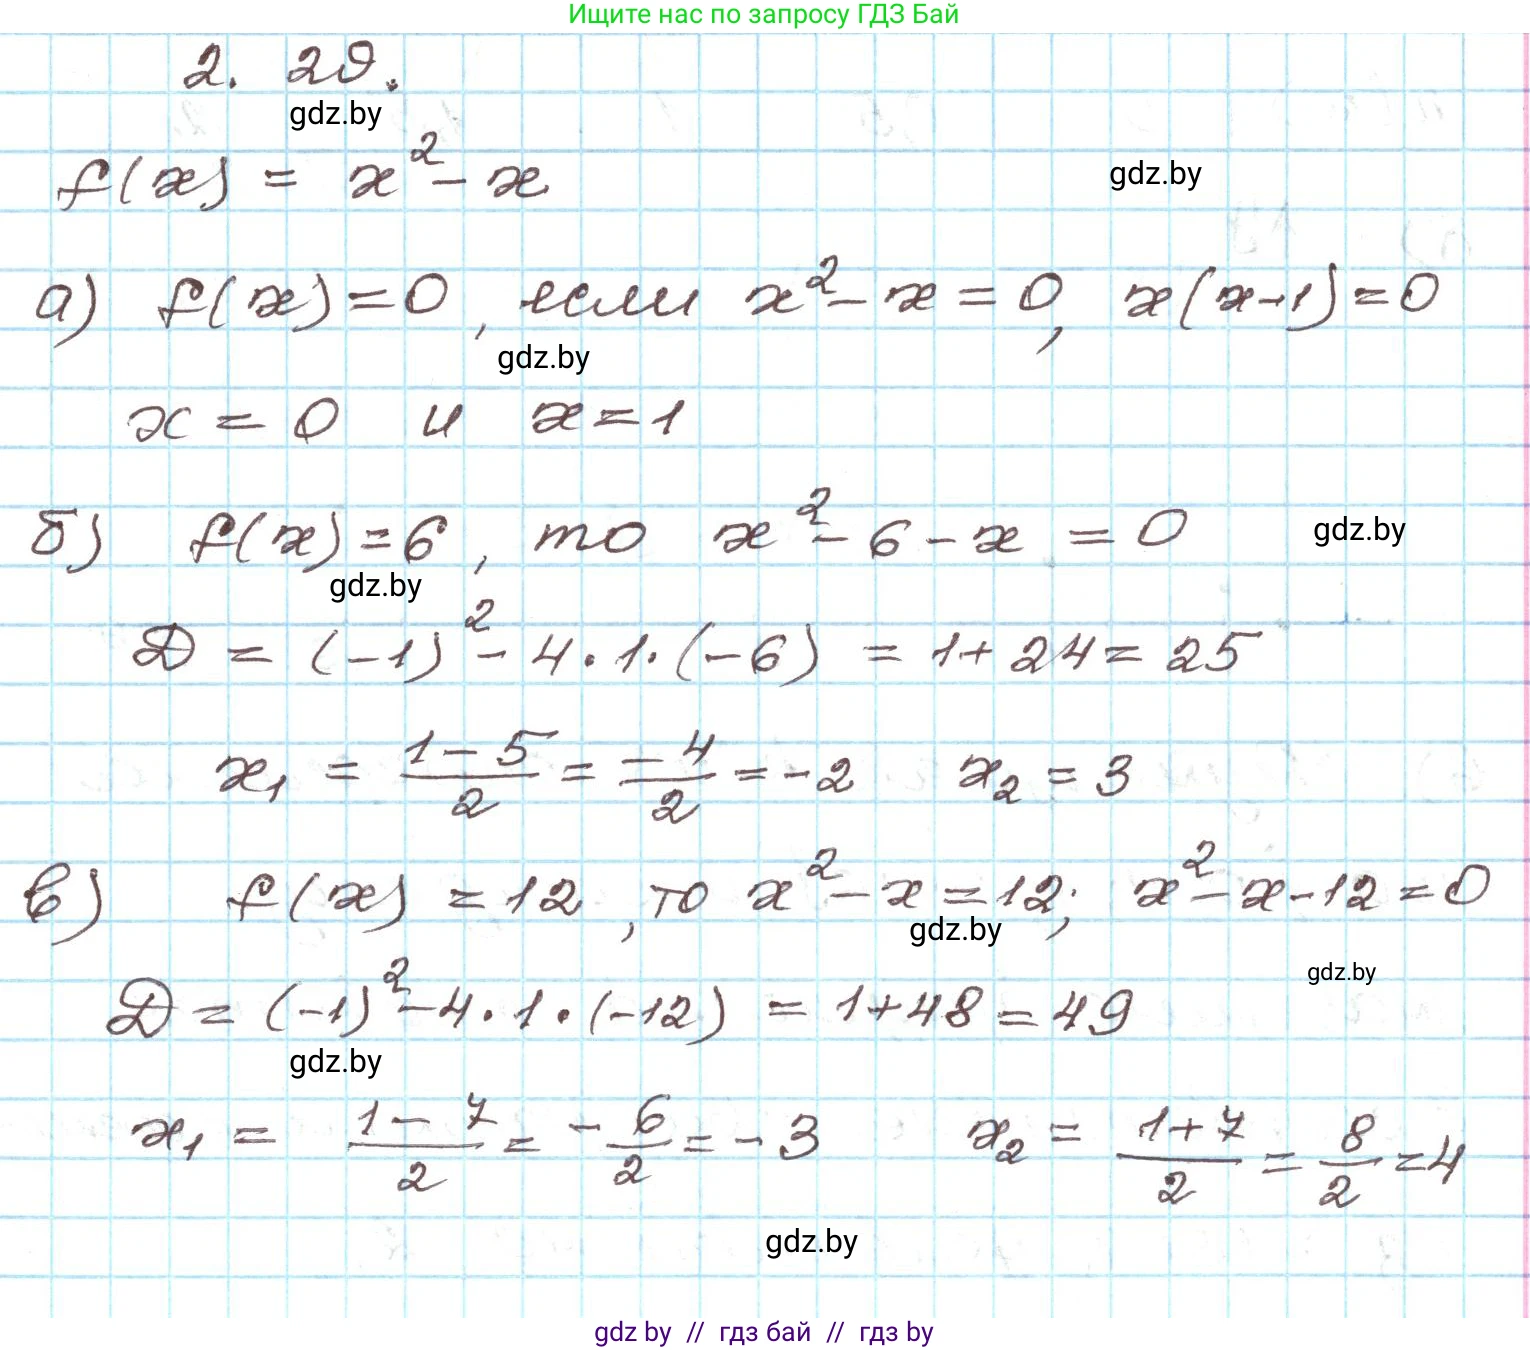 Ищите нас по запросу ГДЗ Бай
2. 29.
gdz.by
f(x) = x² - x
gdz.by
а) f(x) = 0, если x² - x = 0, x(x-1) = 0
gdz.by
x = 0 и x = 1
б) f(x) = 6, то x² - 6 - x = 0
gdz.by
gdz.by
D = (-1)² - 4·1·(-6) = 1 + 24 = 25
x₁ = (1-5)/2 = -4/2 = -2 x₂ = 3
в) f(x) = 12, то x² - x = 12; x² - x - 12 = 0
gdz.by
gdz.by
D = (-1)² - 4·1·(-12) = 1 + 48 = 49
gdz.by
x₁ = (1-7)/2 = -6/2 = -3 x₂ = (1+7)/2 = 8/2 = 4
gdz.by
gdz by // гдз бай // гдз by